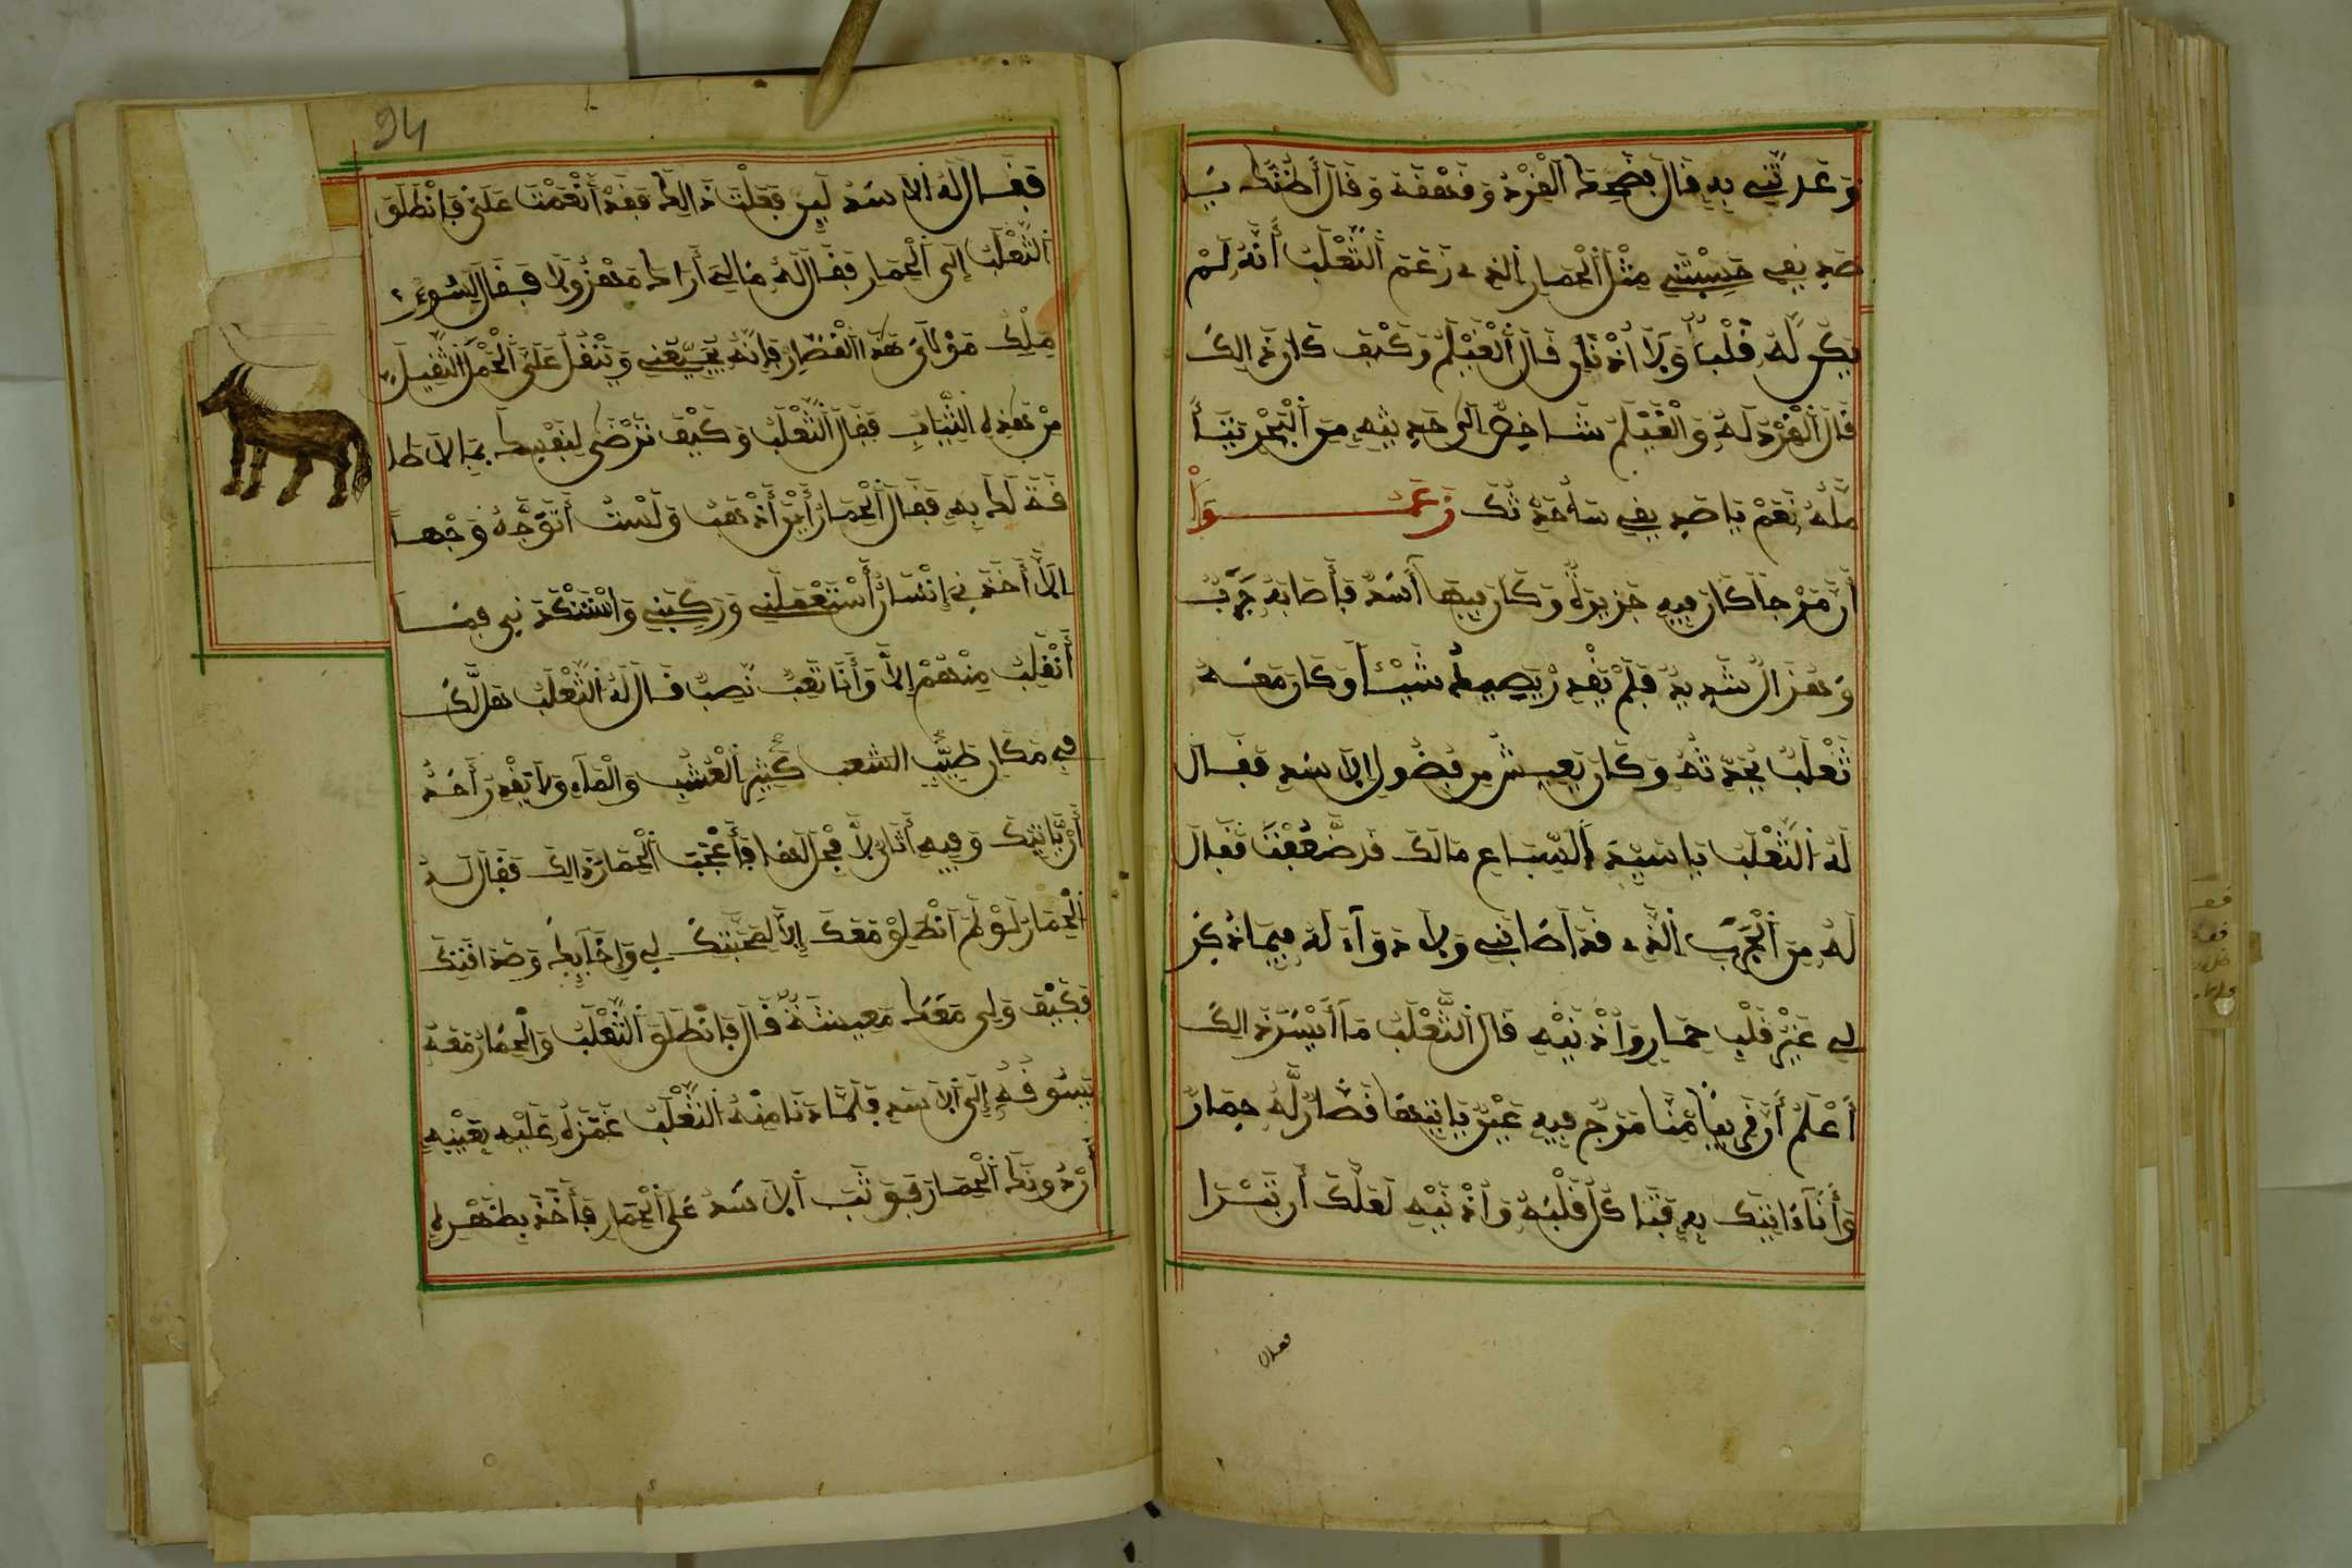 وَعَدتَّنِي بِهِ قَالَ فَضَحِكَ الْقِرْدُ وَقَهْقَهَ وَقَالَ أَظُنُّكَ يَا
صَدِيقِي حَسِبْتَنِي مِثْلَ الْحِمَارِ الَّذِي زَعَمَ الثَّعْلَبُ أَنَّهُ لَمْ
يَكُن لَّهُ قَلْبٌ وَلَا أُذْنَانِ قَالَ الْغَيْلَمُ وَكَيْفَ كَانَ ذَالِكَ
قَالَ الْقِرْدُ لَهُ وَالْغَيْلَمُ شَاخِصٌ إِلَى حَدِيثِهِ مِنَ الْبَحْرِ
نَعَمْ يَا صَدِيقِي سَأُحَدِّثُكَ زَعَمُوا
أَنَّ مَرْجًا كَانَ فِيهِ جَزِيرَةٌ وَكَانَ فِيهَا أَسَدٌ فَأَصَابَهُ جَرَبٌ
وَهُزَالٌ شَدِيدٌ فَلَمْ يَقْدِرْ يَصِيدُ شَيْئًا وَكَانَ مَعَهُ
ثَعْلَبٌ يُحَدِّثُهُ وَكَانَ يَعِيشُ مِن فُضُولِ الْأَسَدِ فَقَالَ
لَهُ الثَّعْلَبُ يَا سَيِّدَ السِّبَاعِ مَالَكَ قَد ضَّعُفْتَ فَقَالَ
لَهُ مِنَ الْجَرَبِ الَّذِي قَدْ أَصَابَنِي وَلَا دَوَاءَ لَهُ فِيمَا ذُكِرَ
لِي غَيْرُ قَلْبِ حِمَارٍ وَأُذْنَيْهِ قَالَ الثَّعْلَبُ مَا أَيْسَرَ ذَالِكَ
أَعْلَمُ أَنَّ قَرِيبًا مِّنَّا مَرْجٌ فِيهِ عَيْنٌ يَأْتِيهَا قَصَّارٌ لَّهُ حِمَارٌ
وَأَنَا ءَاتِيكَ بِهِ فَتَاكُلُ قَلْبَهُ وَأُذْنَيْهِ لَعَلَّكَ أَن تَبْرَا
فَقَالَ لَهُ الْأَسَدُ لَئِن فَعَلْتَ ذَالِكَ فَقَدْ أَنْعَمْتَ عَلَيَّ فَانْطَلَقَ
الثَّعْلَبُ إِلَى الْحِمَارِ فَقَالَ لَهُ مَا لِي أَرَاكَ مَهْزُولًا فَقَالَ لِسُوءِ
مِلْكِ مَوْلَايَ هَذَا الْقَصَّارِ فَإِنَّهُ يُجِيعُنِي وَيُثْقِلُ عَلَيَّ الْحِمْلَ الثَّقِيلَ
مِنْ هَذِهِ الثِّيَابِ فَقَالَ الثَّعْلَبُ وَكَيْفَ تَرْضَى لِنَفْسِكَ بِمَا لَا طَا
قَةَ لَكَ بِهِ فَقَالَ الْحِمَارُ أَيْنَ أَذْهَبُ وَلَسْتُ أَتَوَجَّهُ وَجْهًا
إِلَّا أَخَذَنِي إِنْسَانٌ اسْتَعْمَلَنِي وَرَكِبَنِي وَاسْتَكَدَّنِي فَمَا
أَنْقَلِبُ مِنْهُمْ إِلَّا وَأَنَا تَعِبٌ نَصِبٌ قَالَ لَهُ الثَّعْلَبُ هَل لَّكَ
فِي مَكَانٍ طَيِّبِ الشعب كَثِيرِ الْعُشْبِ وَالْمَاءِ وَلَا يَقْدِرُ أَحَدٌ
أَنْ يَّاتِيَكَ وَفِيهِ أَتَانٌ لَّا فَحْلَ لَهَا فَأَعْجَبَ الْحِمَارَ ذَالِكَ فَقَالَ لَهُ
الْحِمَارُ لَوْ لَمْ أَنْطَلِقْ مَعَكَ إِلَّا لِمَحَبَّتِكَ لِي وَإِخَائِكَ وَصَدَاقَتِكَ
فَكَيْفَ وَلِي مَعَكَ مَعِيشَةٌ قَالَ فَانْطَلَقَ الثَّعْلَبُ وَالْحِمَارُ مَعَهُ
يَسُوقُهُ إِلَى الْأَسَدِ فَلَمَّا دَنَا مِنْهُ الثَّعْلَبُ غَمَزَهُ عَلَيْهِ بِعَيْنَيْهِ
أَنْ دُونَكَ الْحِمَارَ فَوَثَبَ الْأَسَدُ عَلَى الْحِمَارِ فَأَخَذَ بِظَهْرِهِ